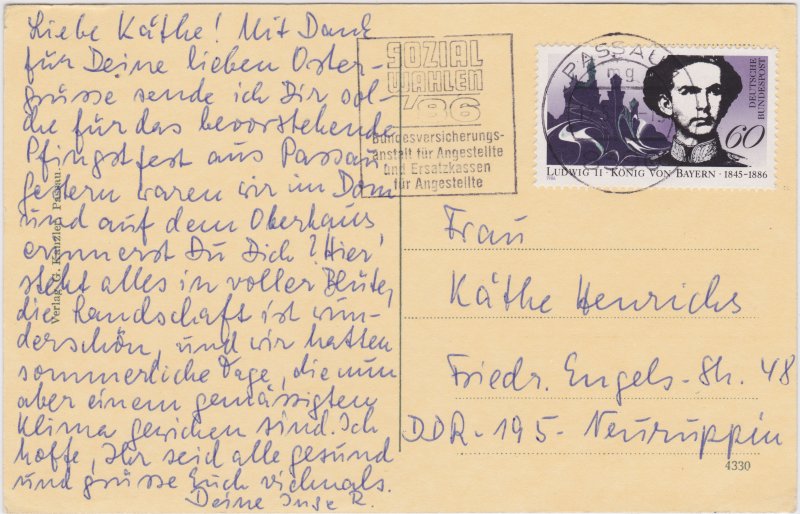 Liebe Käthe! Mit Dank
für Deine lieben Oster-
grüsse sende ich Dir sol-
che für das bevorstehende
Pfingstfest aus Passau
Gestern waren wir im Dom
und auf dem Oberhaus,
erinnerst Du Dich? Hier
steht alles in voller Blüte,
die Landschaft ist wun-
derschön, und wir hatten
sommerliche Tage, die nun
aber einem gemässigten
Klima gewichen sind. Ich
hoffe, Ihr seid alle gesund
und grüsse Euch vielmals.
Deine Inge R.
Verlag G. Kanzler, Passau.
SOZIAL
WAHLEN
'86
Bundesversicherungs-
anstalt für Angestellte
und Ersatzkassen
für Angestellte
PASSAU
mg
DEUTSCHE
BUNDESPOST
60
LUDWIG II · KÖNIG VON BAYERN · 1845-1886
1986
Frau
Käthe Henrichs
Friedr. Engels-Str. 48
DDR-195-Neuruppin
4330